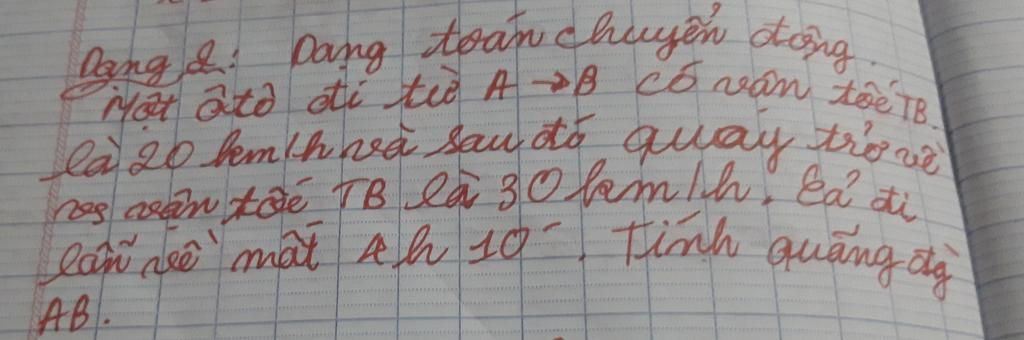 Dạng 2: Dạng toán chuyển động.
Một ôtô đi từ A → B có vận tốc TB
là 20 km/h và sau đó quay trở về
vận tốc TB là 30 km/h. Cả đi
lẫn về mất 4h 10'. Tính quãng đg
AB.